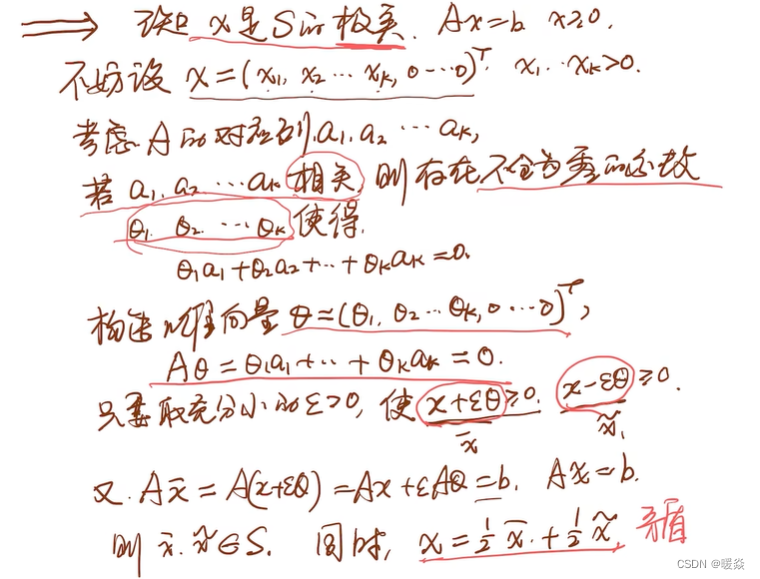 ⟹ 设 x是S的极点. Ax=b. x≥0.
不妨设 x=(x₁, x₂ ⋯ xₖ, 0⋯0)ᵀ, x₁⋯xₖ>0.
考虑 A的对应列 a₁, a₂ ⋯ aₖ,
若 a₁, a₂ ⋯aₖ 相关, 则存在不全为零的数
θ₁ θ₂ ⋯ θₖ 使得.
θ₁a₁+θ₂a₂+⋯+θₖaₖ=0.
构造n维向量 θ=(θ₁, θ₂⋯θₖ, 0⋯0)ᵀ,
Aθ=θ₁a₁+⋯+θₖaₖ=0.
只要取充分小的ε>0, 使 x+εθ≥0. x-εθ≥0.
x̄ x̃,
又. Ax̄=A(x+εθ)=Ax+εAθ=b, Ax̃=b.
则 x̄. x̃∈S. 同时, x=½x̄+½x̃, 矛盾
CSDN @暖焱